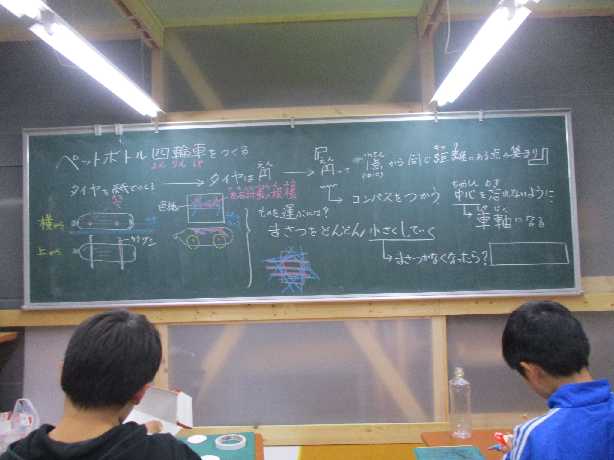 ペットボトル四輪車をつくる
よんりんしゃ
タイヤを紙でつくる → タイヤは円 → 「円」って 1点から同じ距離のある点の集まり」
かみ
えん
えん
コンパスをつかう
中心を忘れないように
車軸になる
横から
上から
ものを運ぶには?
まさつをどんどん小さくしていく
まさつがなくなったら?